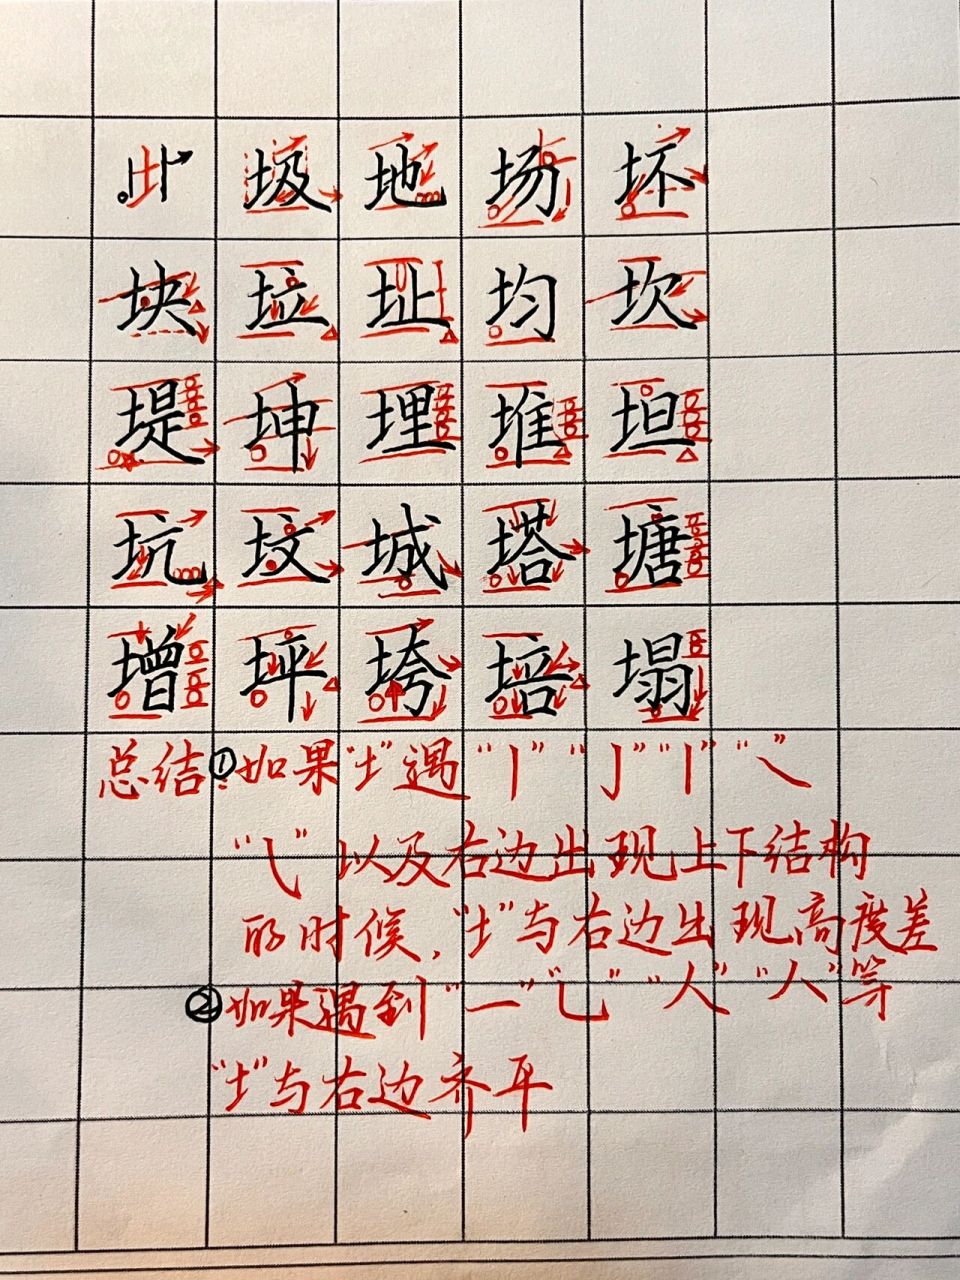 圾地场坏
块垃址均坎
堤坤埋堆坦
坑坟城塔塘
增坪垮培塌
总结①:如果“土”遇“丨”“亅”“丨”“㇏”
“㇂”以及右边出现上下结构
的时候,“土”与右边出现高度差
②如果遇到“一”“乚”“人”“人”等
“土”与右边齐平